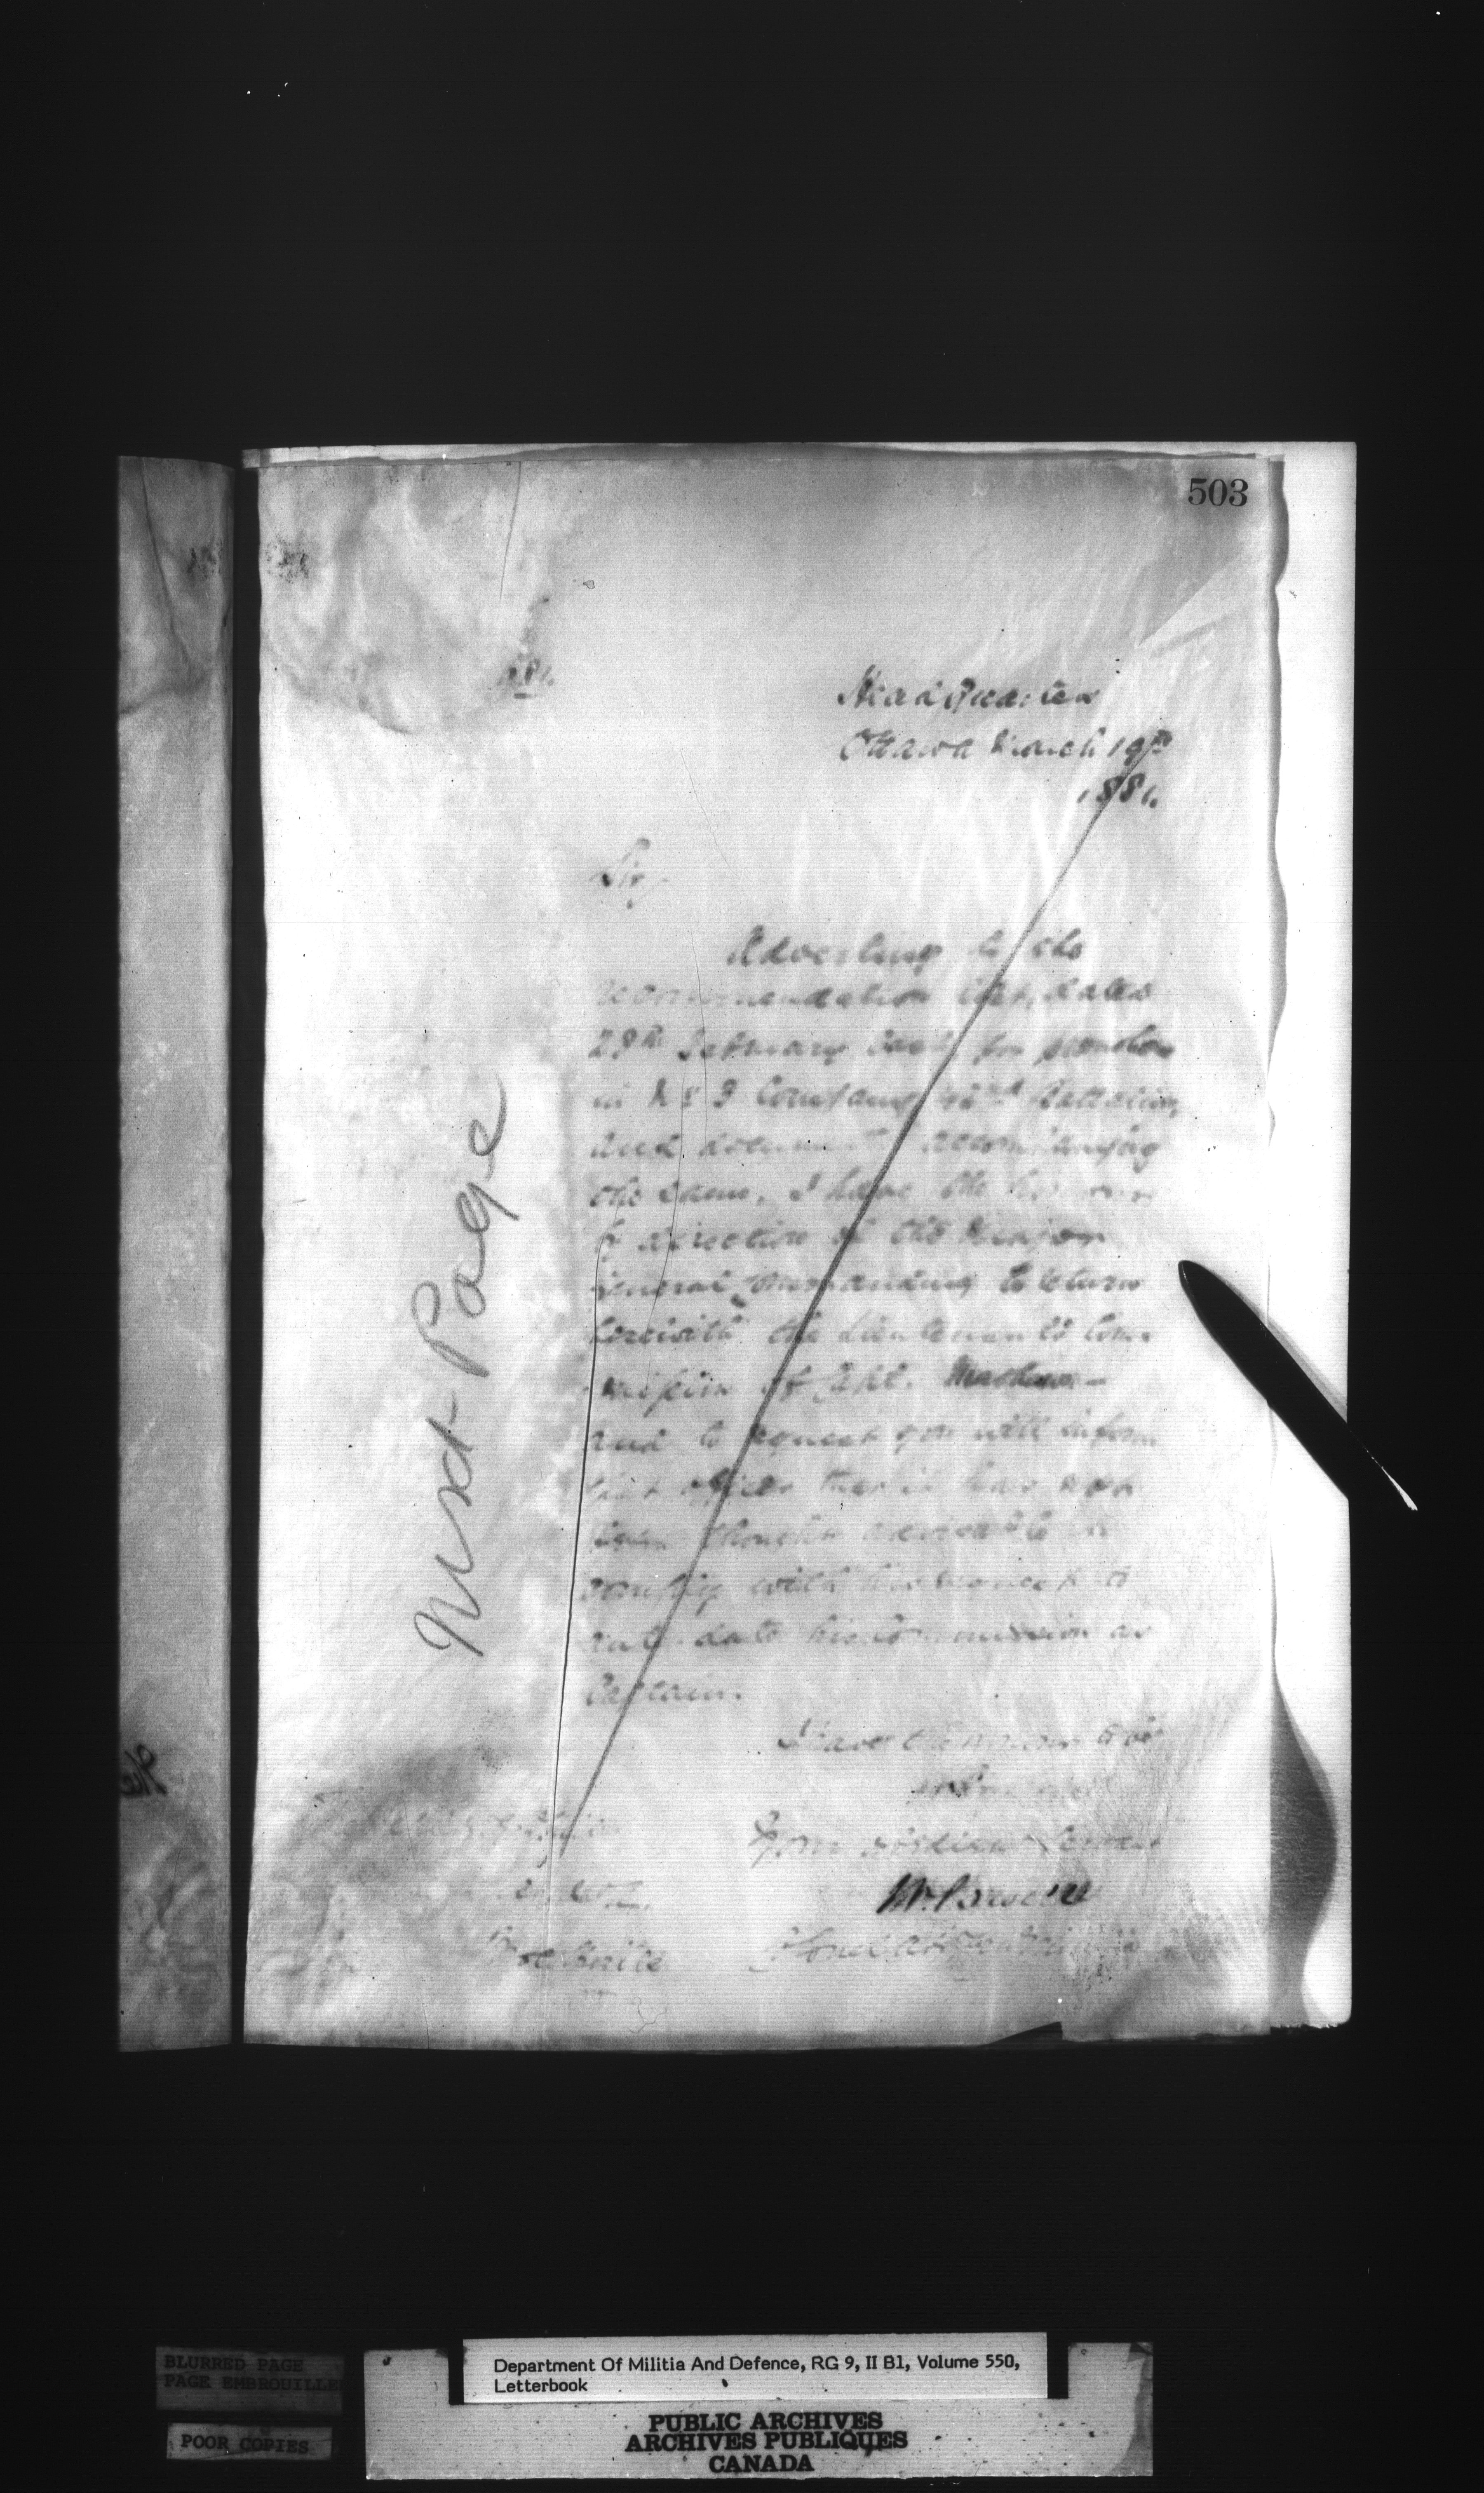 503
Head Quarters
Ottawa March 19th
1881.
Sir,
Adverting to the
recommendation list, dated
28th February last, for promotion
in No 3 Company 42nd Battalion,
and document accompanying
the same, I have the honour
by direction of the Major
General Commanding to return
herewith the Lieutenant's Com-
mission of Capt.
and to request you will inform
that officer that it has not
been thought advisable to
comply with his request to
ante date his Commission as
Captain.
I have the honour to be
Sir
Your obedient Servant
Colonel
Brockville
Next Page
Department Of Militia And Defence, RG 9, II B1, Volume 550,
Letterbook
BLURRED PAGE
PAGE EMBROUILLE
POOR COPIES
PUBLIC ARCHIVES
ARCHIVES PUBLIQUES
CANADA